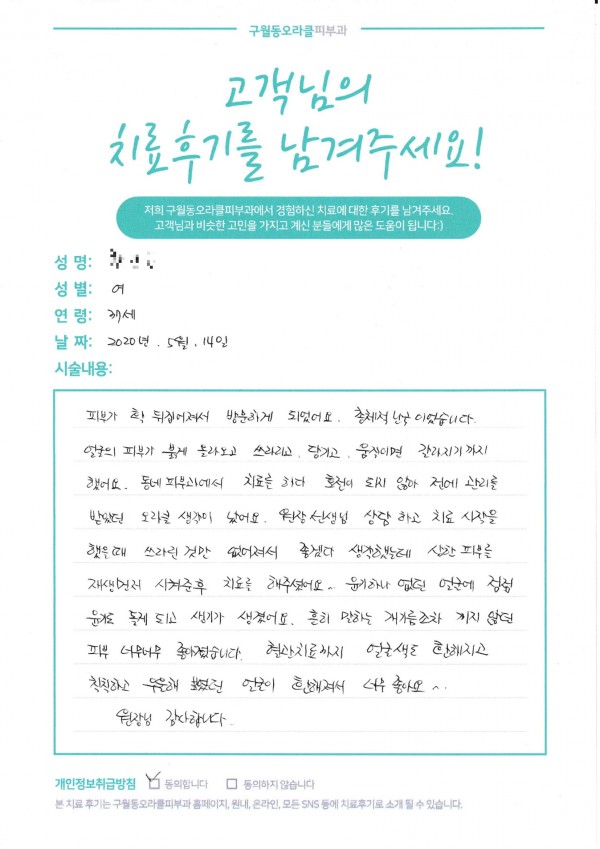 구월동오라클피부과
고객님의
치료후기를 남겨주세요!
저희 구월동오라클피부과에서 경험하신 치료에 대한 후기를 남겨주세요.
고객님과 비슷한 고민을 가지고 계신 분들에게 많은 도움이 됩니다:)
성 명:
성 별: 여
연 령: 37세
날 짜: 2020년. 5월. 14일
시술내용:
피부가 확 뒤집어져서 방문하게 되었어요. 총체적 난국이었습니다.
얼굴의 피부가 붉게 올라오고 쓰라리고. 당기고. 움직이면 갈라지기까지
했어요. 동네피부과에서 치료를 하다 호전이 되지 않아 전에 관리를
받았던 오라클 생각이 났어요. 원장선생님 상담 하고 치료 시작을
했을때 쓰라린 것만 없어져서 좋겠다 생각했는데 상한 피부를
재생먼저 시켜준후 치료를 해주셨어요~ 윤기하나 없던 얼굴에 점점
윤기도 돌게 되고 생기가 생겼어요. 흔히 말하는 개기름조차 끼지 않던
피부 너무너무 좋아졌습니다. 혈관치료까지 얼굴색도 환해지고
칙칙하고 우울해 보였던 얼굴이 환해져서 너무 좋아요~.
원장님 감사합니다.
개인정보취급방침 동의합니다 동의하지 않습니다
본 치료 후기는 구월동오라클피부과 홈페이지, 원내, 온라인, 모든 SNS 등에 치료후기로 소개 될 수 있습니다.